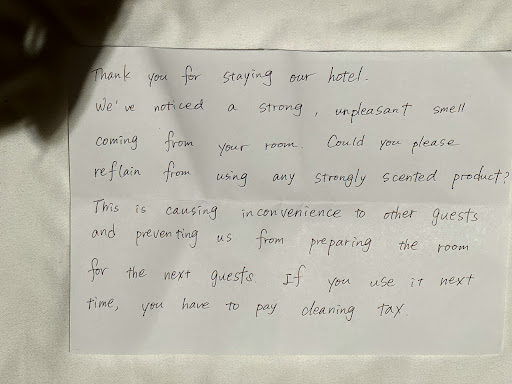 Thank you for staying our hotel.
We've noticed a strong, unpleasant smell
coming from your room. Could you please
reflain from using any strongly scented product?
This is causing inconvenience to other guests
and preventing us from preparing the room
for the next guests. If you use it next
time, you have to pay cleaning tax.